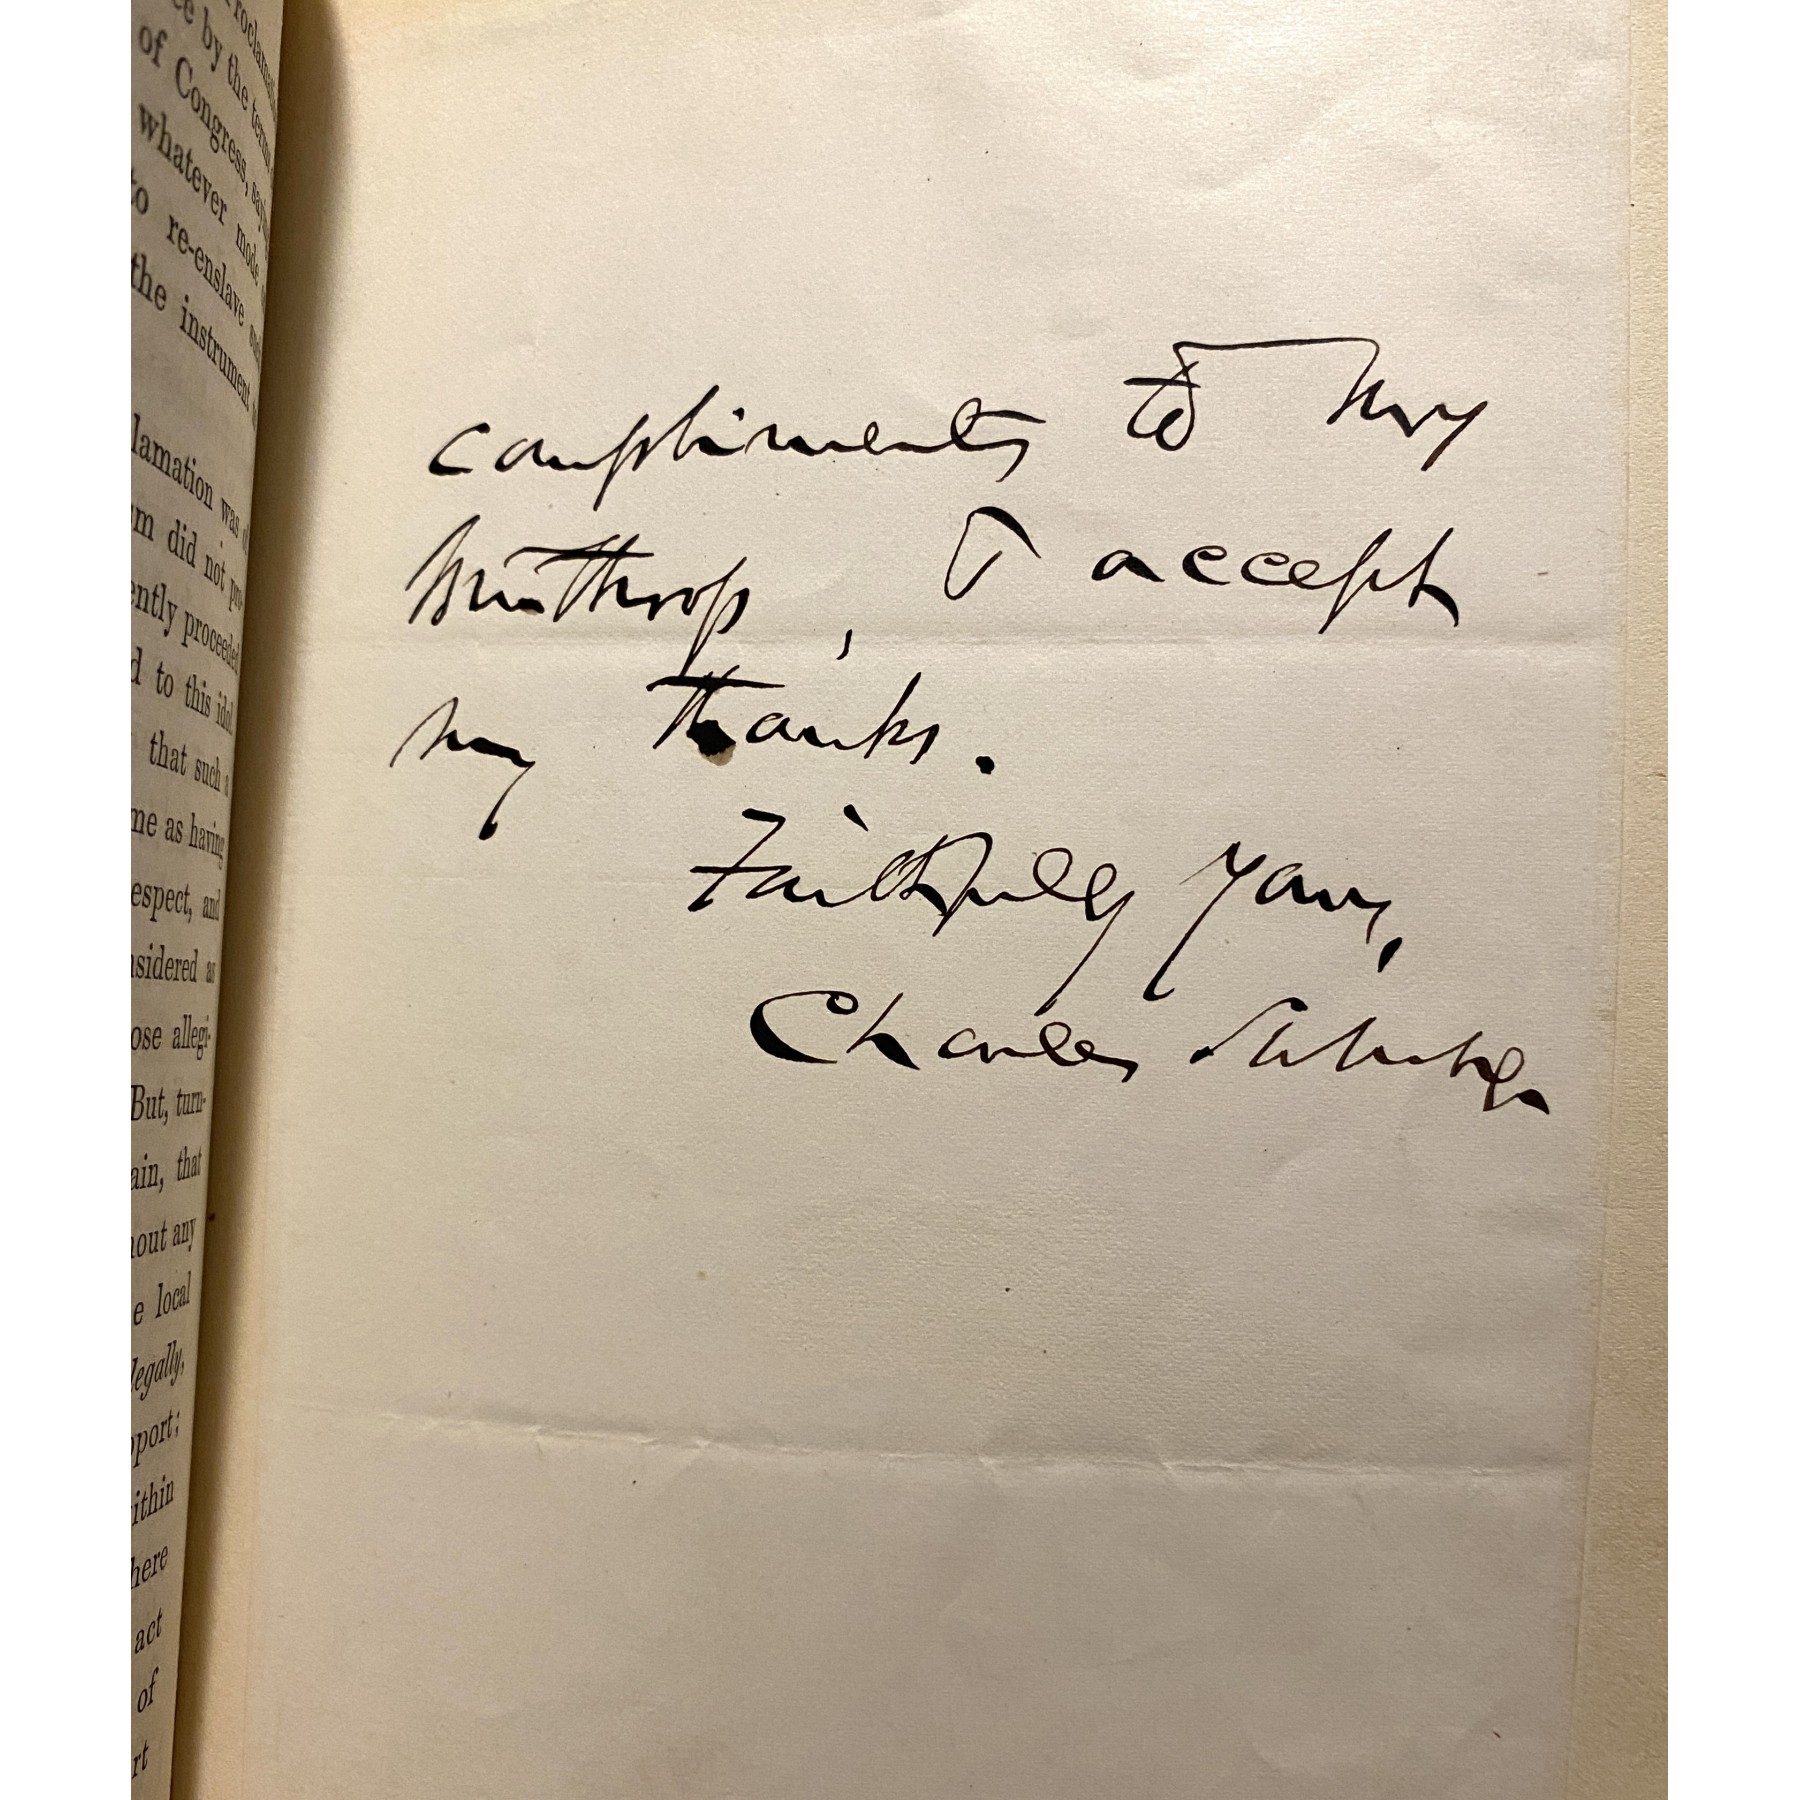 by the terms
of Congress, saying
whatever mode
to re-enslave such
the instrument
lamation was
sm did not pro-
ently proceeded
d to this idol
that such a
me as having
espect, and
nsidered as
ose allegi-
But, turn-
ain, that
hout any
e local
legally,
pport;
ithin
here
act
of
rt
compliments to Mrs
Winthrop, & accept
my thanks.
Faithfully Yours,
Charles Sumner